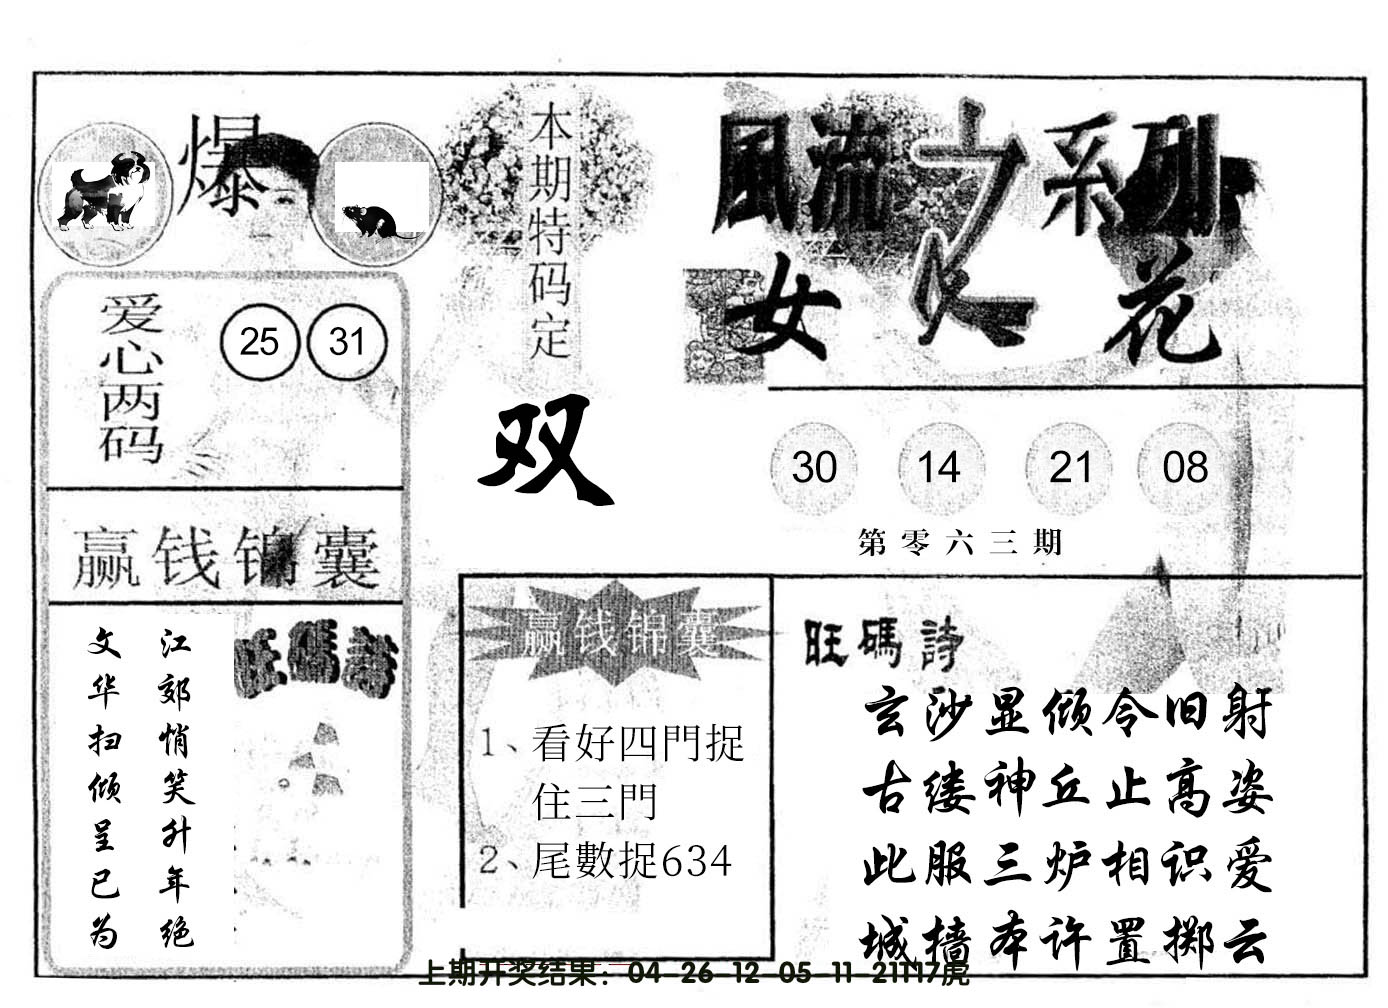 爆
本期特码定
双
風流之系列
女人花
爱心两码
25 31
30 14 21 08
第零六三期
赢钱锦囊
江郊悄笑升年绝
文华扫倾呈已为
旺碼詩
赢钱锦囊
1、看好四門捉
住三門
2、尾數捉634
旺碼詩
玄沙显倾令旧射
古缕神丘止高姿
此服三炉相识爱
城墙本许置掷云
上期开奖结果：04-26-12-05-11-21T17虎